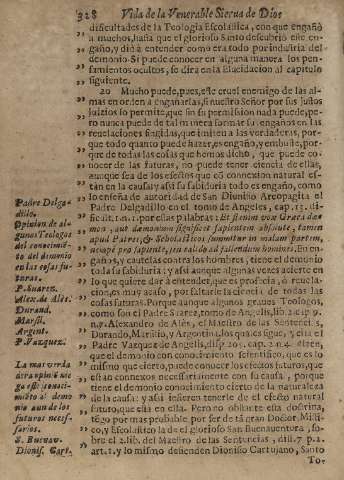 328 Vida de la Venerable Sierua de Dios
dificultades de la Teologia Escolastica, con que engañò
a muchos, hasta que el glorioso Santo descubriò este en-
gaño, y diò à entender como era todo por industria del
demonio. Si puede conocer en alguna manera los pen-
samientos ocultos, se dirà en la Elucidacion al capitulo
siguiente.
20 Mucho puede, pues, este cruel enemigo de las al-
mas en orden a engañarlas, si nuestro Señor por sus justos
juizios lo permite, que sin su permission nada puede; pe-
ro nunca puede de tal manera formar sus engaños en las
reuelaciones fingidas, que imiten a las verdaderas, por-
que todo quanto puede hazer, es engaño, y embuste, por-
que de todas las cosas que hemos dicho, que puede co-
nocer de las futuras, no puede tener ciencia de ellas,
aunque sea de los efectos que tienen connexion natural es-
tàn en la causa: y assi su sabiduria todo es engaño, como
lo enseña de autoridad de San Dionisio Areopagita el
Padre Delgadillo en el tomo de Angeles, cap. 15. di-
ficult. 1. n. 1. por estas palabras: Et etenim vox Græca dæ-
mon, aut dæmonium significet sapientem absolutè, tamen
apud Patres, & Scholasticos, sumitur in malam partem,
nempè pro sapiente, seu callido ad fallendum homines. En en-
gaños, y cautelas contra los hombres, tiene el demonio
toda su sabiduria: y assi aunque algunas vezes acierte en
lo que quiere dar à entender, que es profecia, ò reuela-
cion, es muy acaso, por faltarle la ciencia de todas las
cosas futuras. Porque aunque algunos graues Teologos,
como son el Padre Suarez, tomo de Angelis, lib. 2. cap. 9.
n. 9. Alexandro de Alès, el Maestro de las Sentencias,
Durando, Marsilio, y Argentina, los quales sigue, y cita el
Padre Vazquez de Angelis, disp. 205. cap. 2. n. 4. dizen,
que el demonio con conocimiento scientifico, que es lo
mismo que cierto, puede conocer los efectos futuros, que
estàn connexos necessariamente con su causa, porque
tiene el demonio conocimiento cierto de la naturaleza
de la causa: y assi infieren tenerle de el efecto natural
futuro, que està en ella. Pero no obstante esta doctrina,
tengo por mas probable por ser de tã gran Doctor, Misti-
co, y Escolastico la de el glorioso San Buenauentura, so-
bre el 2. lib. del Maestro de las Sentencias, dist. 7. p. 2.
art. 1. y lo mismo defienden Dionisio Cartujano, Santo
To-
Padre Delga-
dillo.
Opinion de al-
gunos Teologos
del conocimiẽ-
to del demonio
en las cosas fu-
turas.
P. Suarez.
Alex. de Alès.
Durand.
Marsil.
Argent.
P. Vazquez.
La mas verda
dera opiniõ nie
ga este conoci-
miẽto al demo
nio aun de los
futuros neces-
sarios.
S. Buenav.
Dionis. Cart.